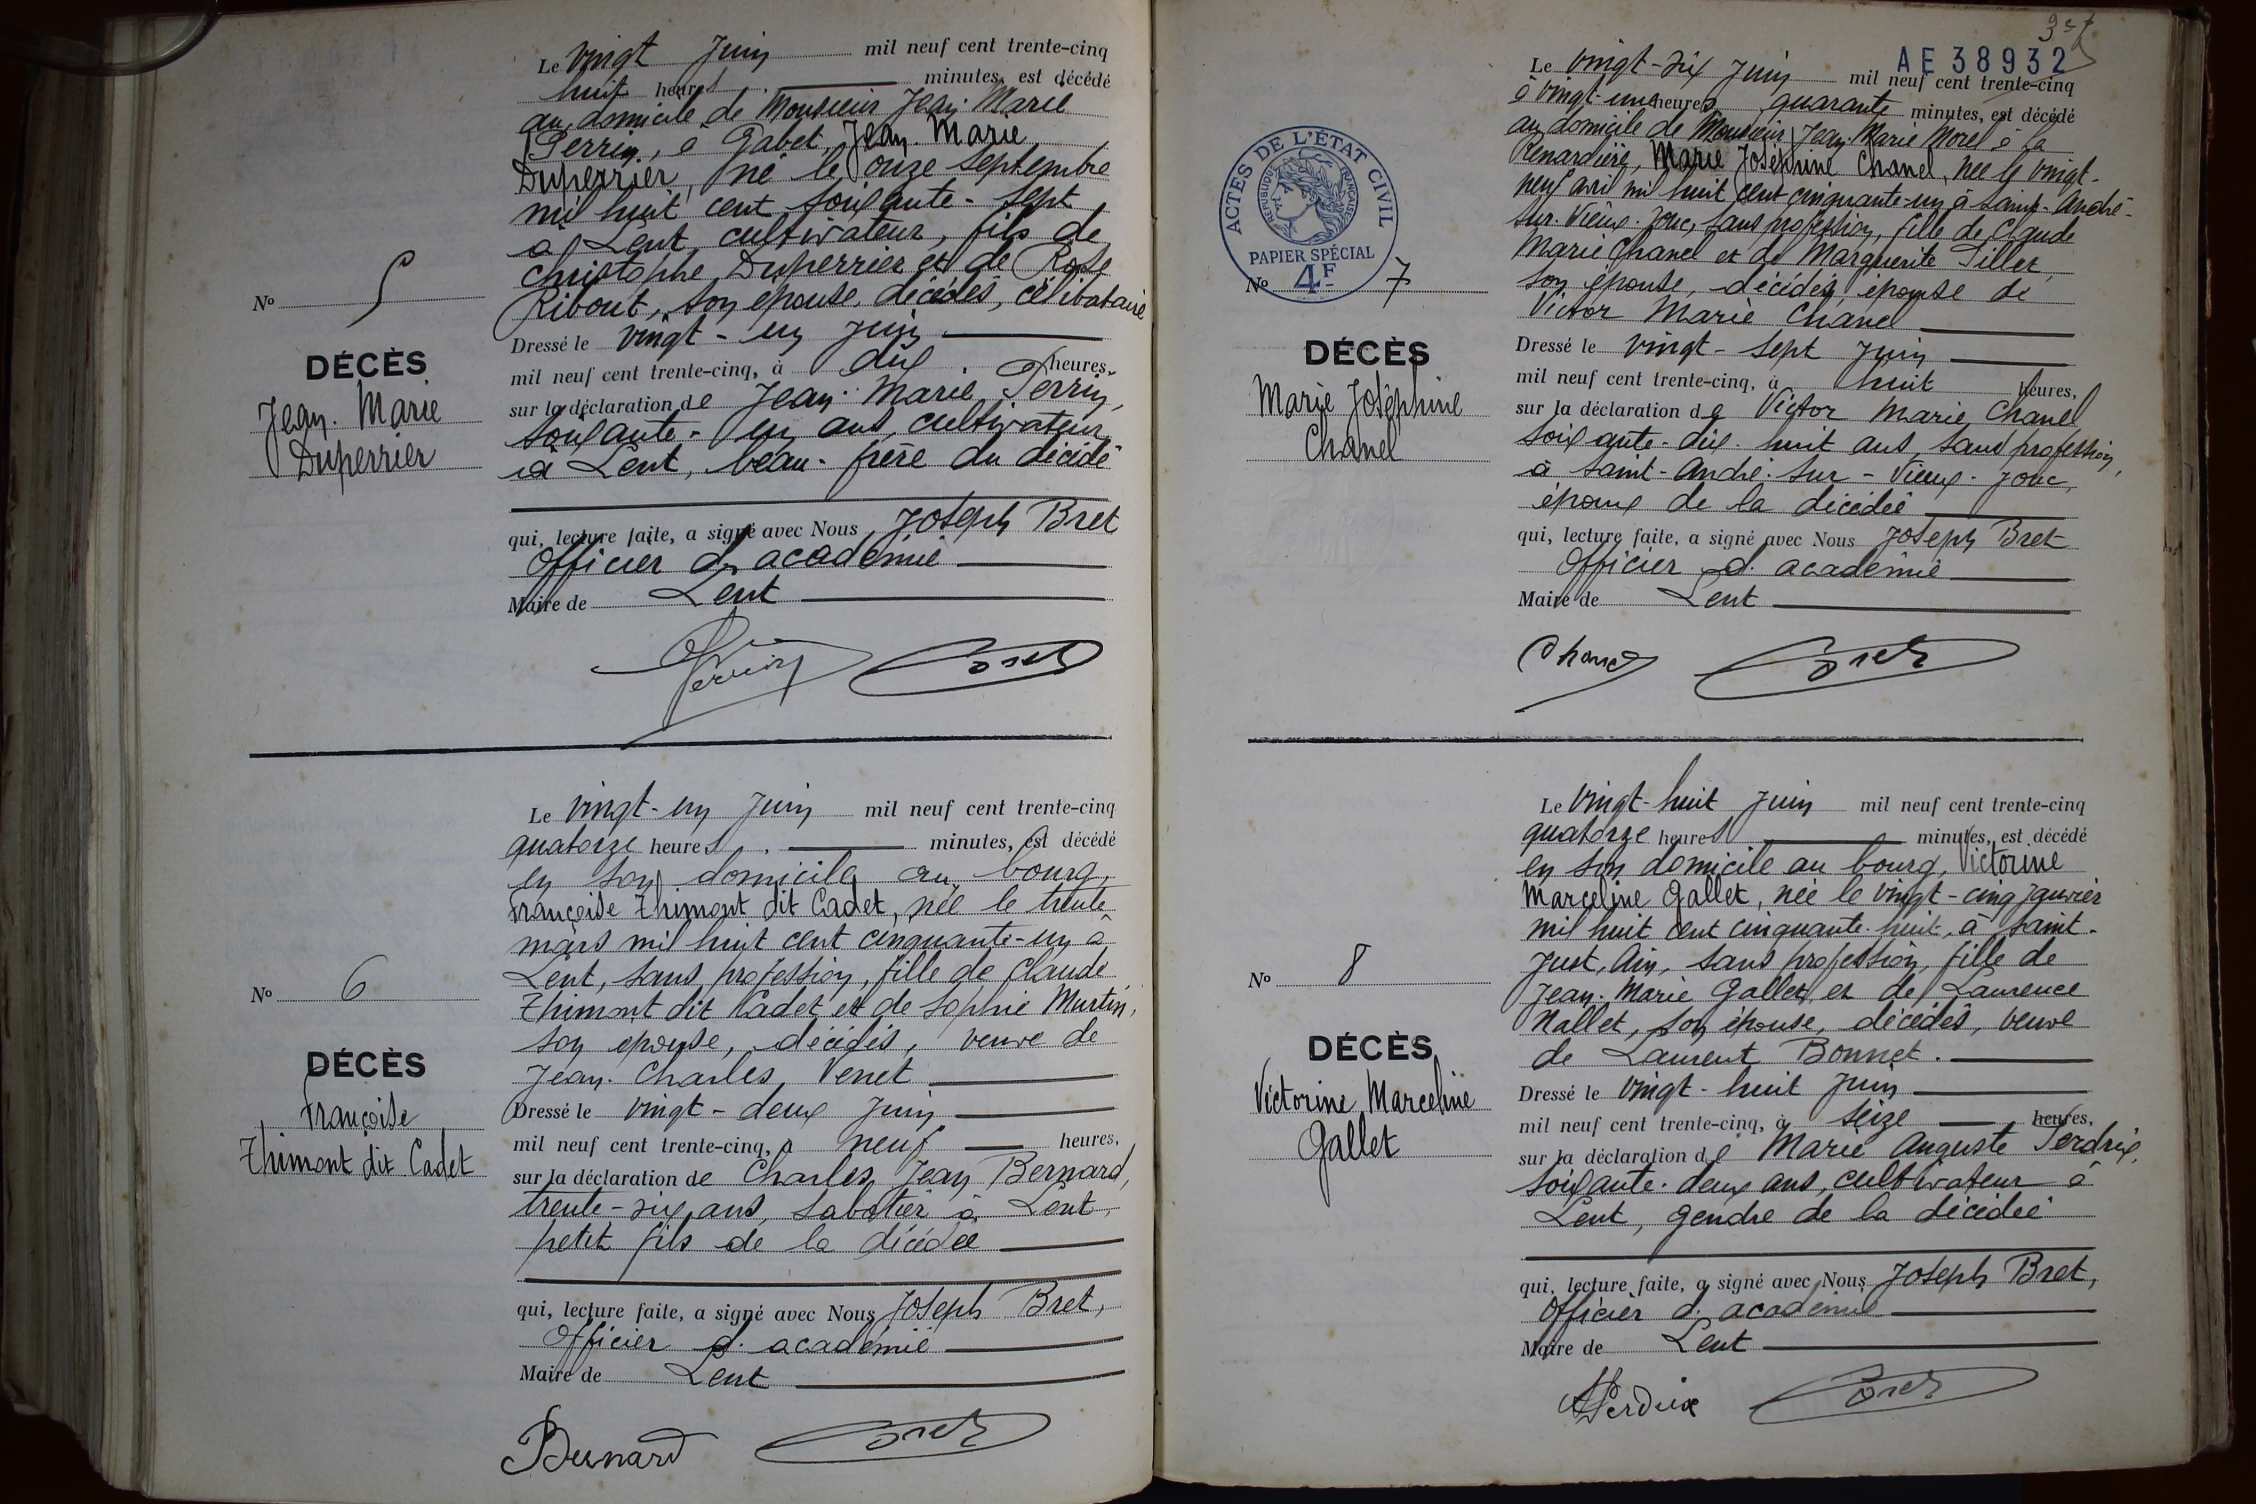 Le vingt Juin mil neuf cent trente-cinq
huit heures minutes, est décédé
au domicile de Monsieur Jean-Marie
Perrin, à Gabet, Jean-Marie
Duperrier, né le onze septembre
mil huit cent soixante-sept
à Lent, cultivateur, fils de
Christophe Duperrier et de Rose
Ribout, son épouse, décédés, célibataire
No 5
DÉCÈS
Jean-Marie
Duperrier
Dressé le vingt-un Juin
mil neuf cent trente-cinq, à dix heures,
sur la déclaration de Jean-Marie Perrin,
soixante-un ans, cultivateur
à Lent, beau-frère du décédé
qui, lecture faite, a signé avec Nous Joseph Bret
Officier d'académie
Maire de Lent
Perrin Bret
Le vingt-un Juin mil neuf cent trente-cinq
quatorze heures minutes, est décédé
en son domicile au bourg,
Françoise Thimont dit Cadet, née le trente
mars mil huit cent cinquante-un à
Lent, sans profession, fille de Claude
Thimont dit Cadet et de Sophie Martin,
son épouse, décédés, veuve de
Jean-Charles Venet
No 6
DÉCÈS
Françoise
Thimont dit Cadet
Dressé le vingt-deux Juin
mil neuf cent trente-cinq, à neuf heures,
sur la déclaration de Charles Jean Bernard,
trente-six ans, sabotier à Lent,
petit fils de la décédée
qui, lecture faite, a signé avec Nous Joseph Bret,
Officier d'académie
Maire de Lent
Bernard Bret
AE 38932
Le vingt-six Juin mil neuf cent trente-cinq
à vingt-une heures quarante minutes, est décédé
au domicile de Monsieur Jean Marie Morel à la
Renardière, Marie Joséphine Chanel, née le vingt-
neuf avril mil huit cent cinquante-un à Saint-André-
sur-Vieux-Jonc, sans profession, fille de Claude
Marie Chanel et de Marguerite Pillet,
son épouse, décédés, épouse de
Victor Marie Chanel
ACTES DE L'ÉTAT CIVIL
RÉPUBLIQUE FRANÇAISE
PAPIER SPÉCIAL
4F
No 7
DÉCÈS
Marie Joséphine
Chanel
Dressé le vingt-sept Juin
mil neuf cent trente-cinq, à huit heures,
sur la déclaration de Victor Marie Chanel
soixante-dix-huit ans, sans profession,
à Saint-André-sur-Vieux-Jonc,
époux de la décédée
qui, lecture faite, a signé avec Nous Joseph Bret
Officier d'académie
Maire de Lent
Chanel Bret
Le vingt-huit Juin mil neuf cent trente-cinq
quatorze heures minutes, est décédé
en son domicile au bourg, Victorine
Marceline Gallet, née le vingt-cinq janvier
mil huit cent cinquante-huit, à Saint-
Just, Ain, sans profession, fille de
Jean-Marie Gallet et de Laurence
Nallet, son épouse, décédés, veuve
de Laurent Bonnet.
No 8
DÉCÈS
Victorine Marceline
Gallet
Dressé le vingt-huit Juin
mil neuf cent trente-cinq, à seize heures,
sur la déclaration de Marie Auguste Perdrix,
soixante-deux ans, cultivateur à
Lent, gendre de la décédée
qui, lecture faite, a signé avec Nous Joseph Bret,
Officier d'académie
Maire de Lent
APerdrix Bret